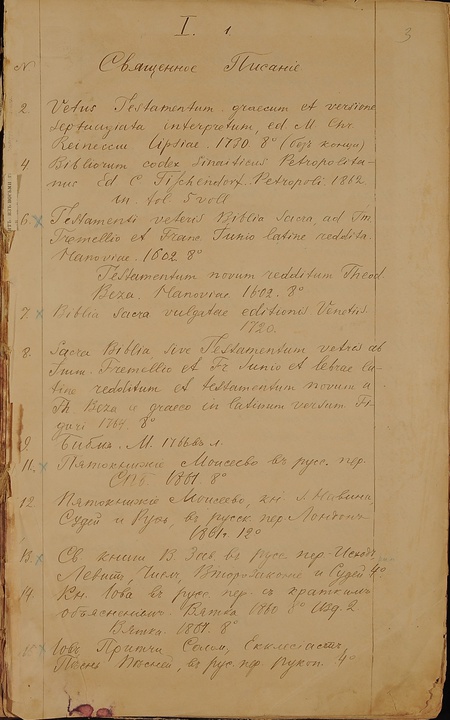 I. 1.
3
№ Священное Писаніе
2 Vetus Testamentum graecum et versione
septuaginta interpretum, ed. M. Chr.
Reineccii Lipsiae. 1730. 8° (безъ конца)
4 Bibliorum codex Sinaiticus Petropolita-
nus Ed C Tischendorf. Petropoli. 1862
in fol 5 voll
6 x Testamenti veteris Biblia Sacra, ad Im.
Tremellio et Franc. Junio latine reddita.
Hanoviae. 1602. 8°
Testamentum novum redditum Theod.
Beza. Hanoviae 1602. 8°
7. x Biblia sacra vulgatae editionis Venetiis
1720.
8. Sacra Biblia sive Testamentum vetus ab
Imm. Tremellio et Fr Junio et hebrae la-
tine redditum et testamentum novum a
Th. Beza e graeco in latinum versum Ti-
guri 1764. 8°
9. Библія. М. 1766 въ л.
11. x Пятокнижіе Моисеево въ русс. пер.
СПб. 1861. 8°
12 Пятокнижіе Моисеево, кн. І. Навина,
Судей и Руѳь, въ русск. пер Лондонъ
1861 г. 12°
13. x Св. книги В. Зав. въ русс. пер. Исходъ,
Левитъ, Числ, Второзаконіе и Судей 4°
14 Кн. Іова въ русс. пер. съ краткимъ
объясненіемъ. Вятка 1860 8° Изд. 2
Вятка. 1861. 8°
15 x Іовъ, Притчи Солом, Екклесіастъ,
Пѣснь Пѣсней, въ рус. пер. рукоп. 4°